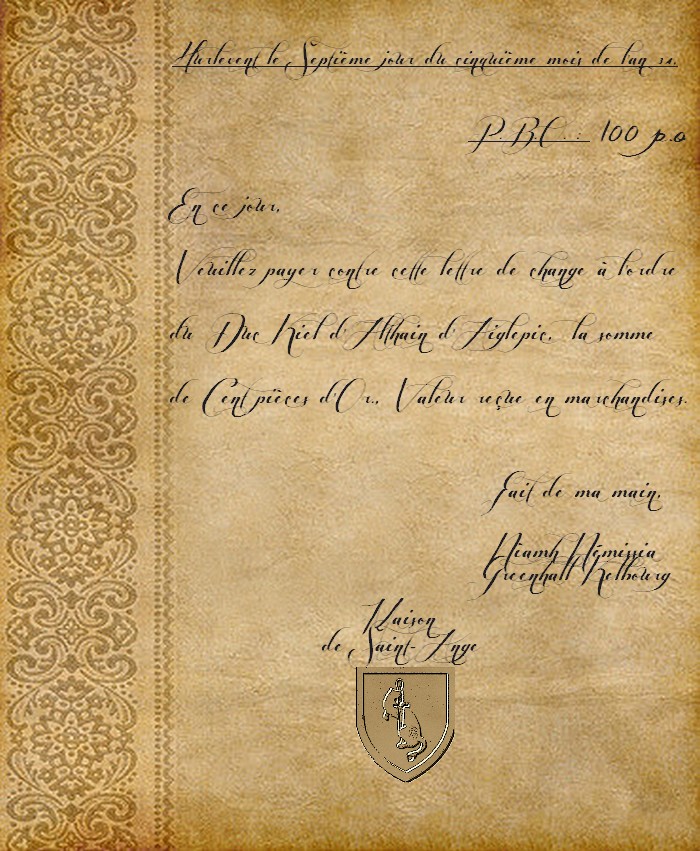 Hurlevent le Septième jour du cinquième mois de l'an 31.
P.B.C. : 100 p.o
En ce jour,
Veuillez payer contre cette lettre de change à l'ordre
du Duc Kiel d'Althain d'Aiglepic, la somme
de Cent pièces d'Or., Valeur reçue en marchandises.
Fait de ma main,
Niamh Némissia
Greenhall Kelbourg
Maison
de Saint-Ange